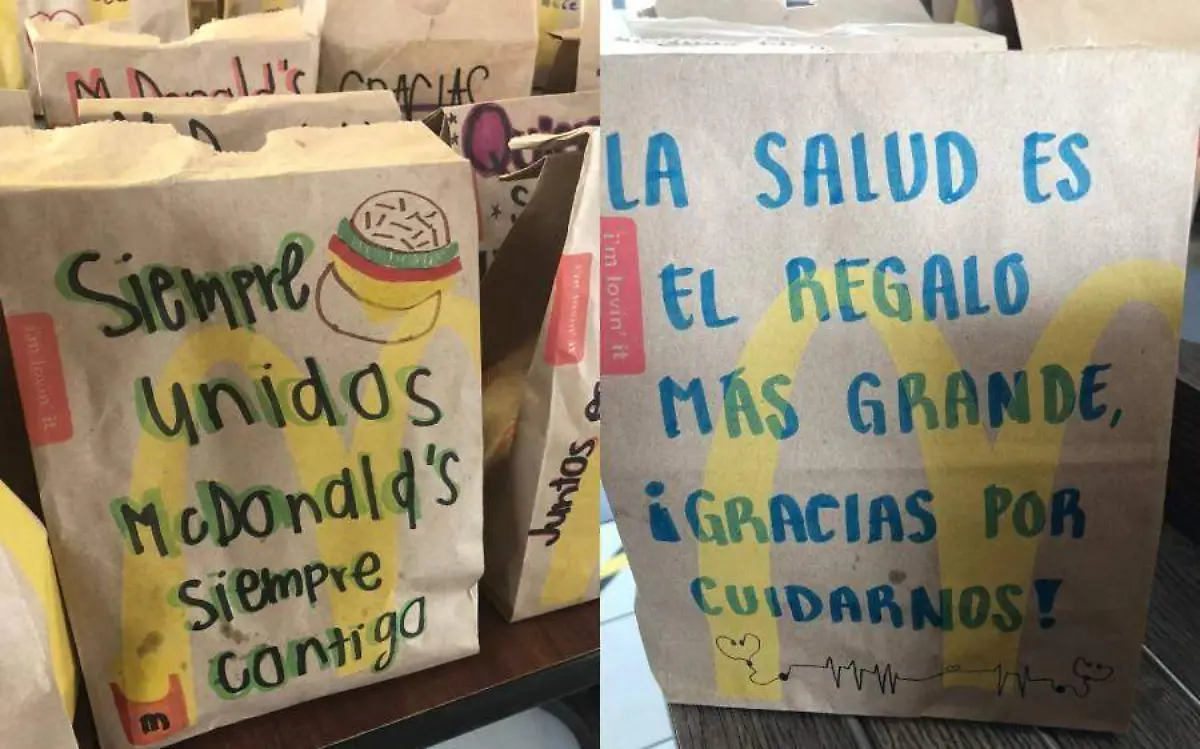 McDonald's
GRACIAS
Siempre
unidos
McDonald's
siempre
contigo
i'm lovin' it
Juntos
i'm lovin' it
LA SALUD ES
EL REGALO
MÁS GRANDE,
¡GRACIAS POR
CUIDARNOS!
i'm lovin' it